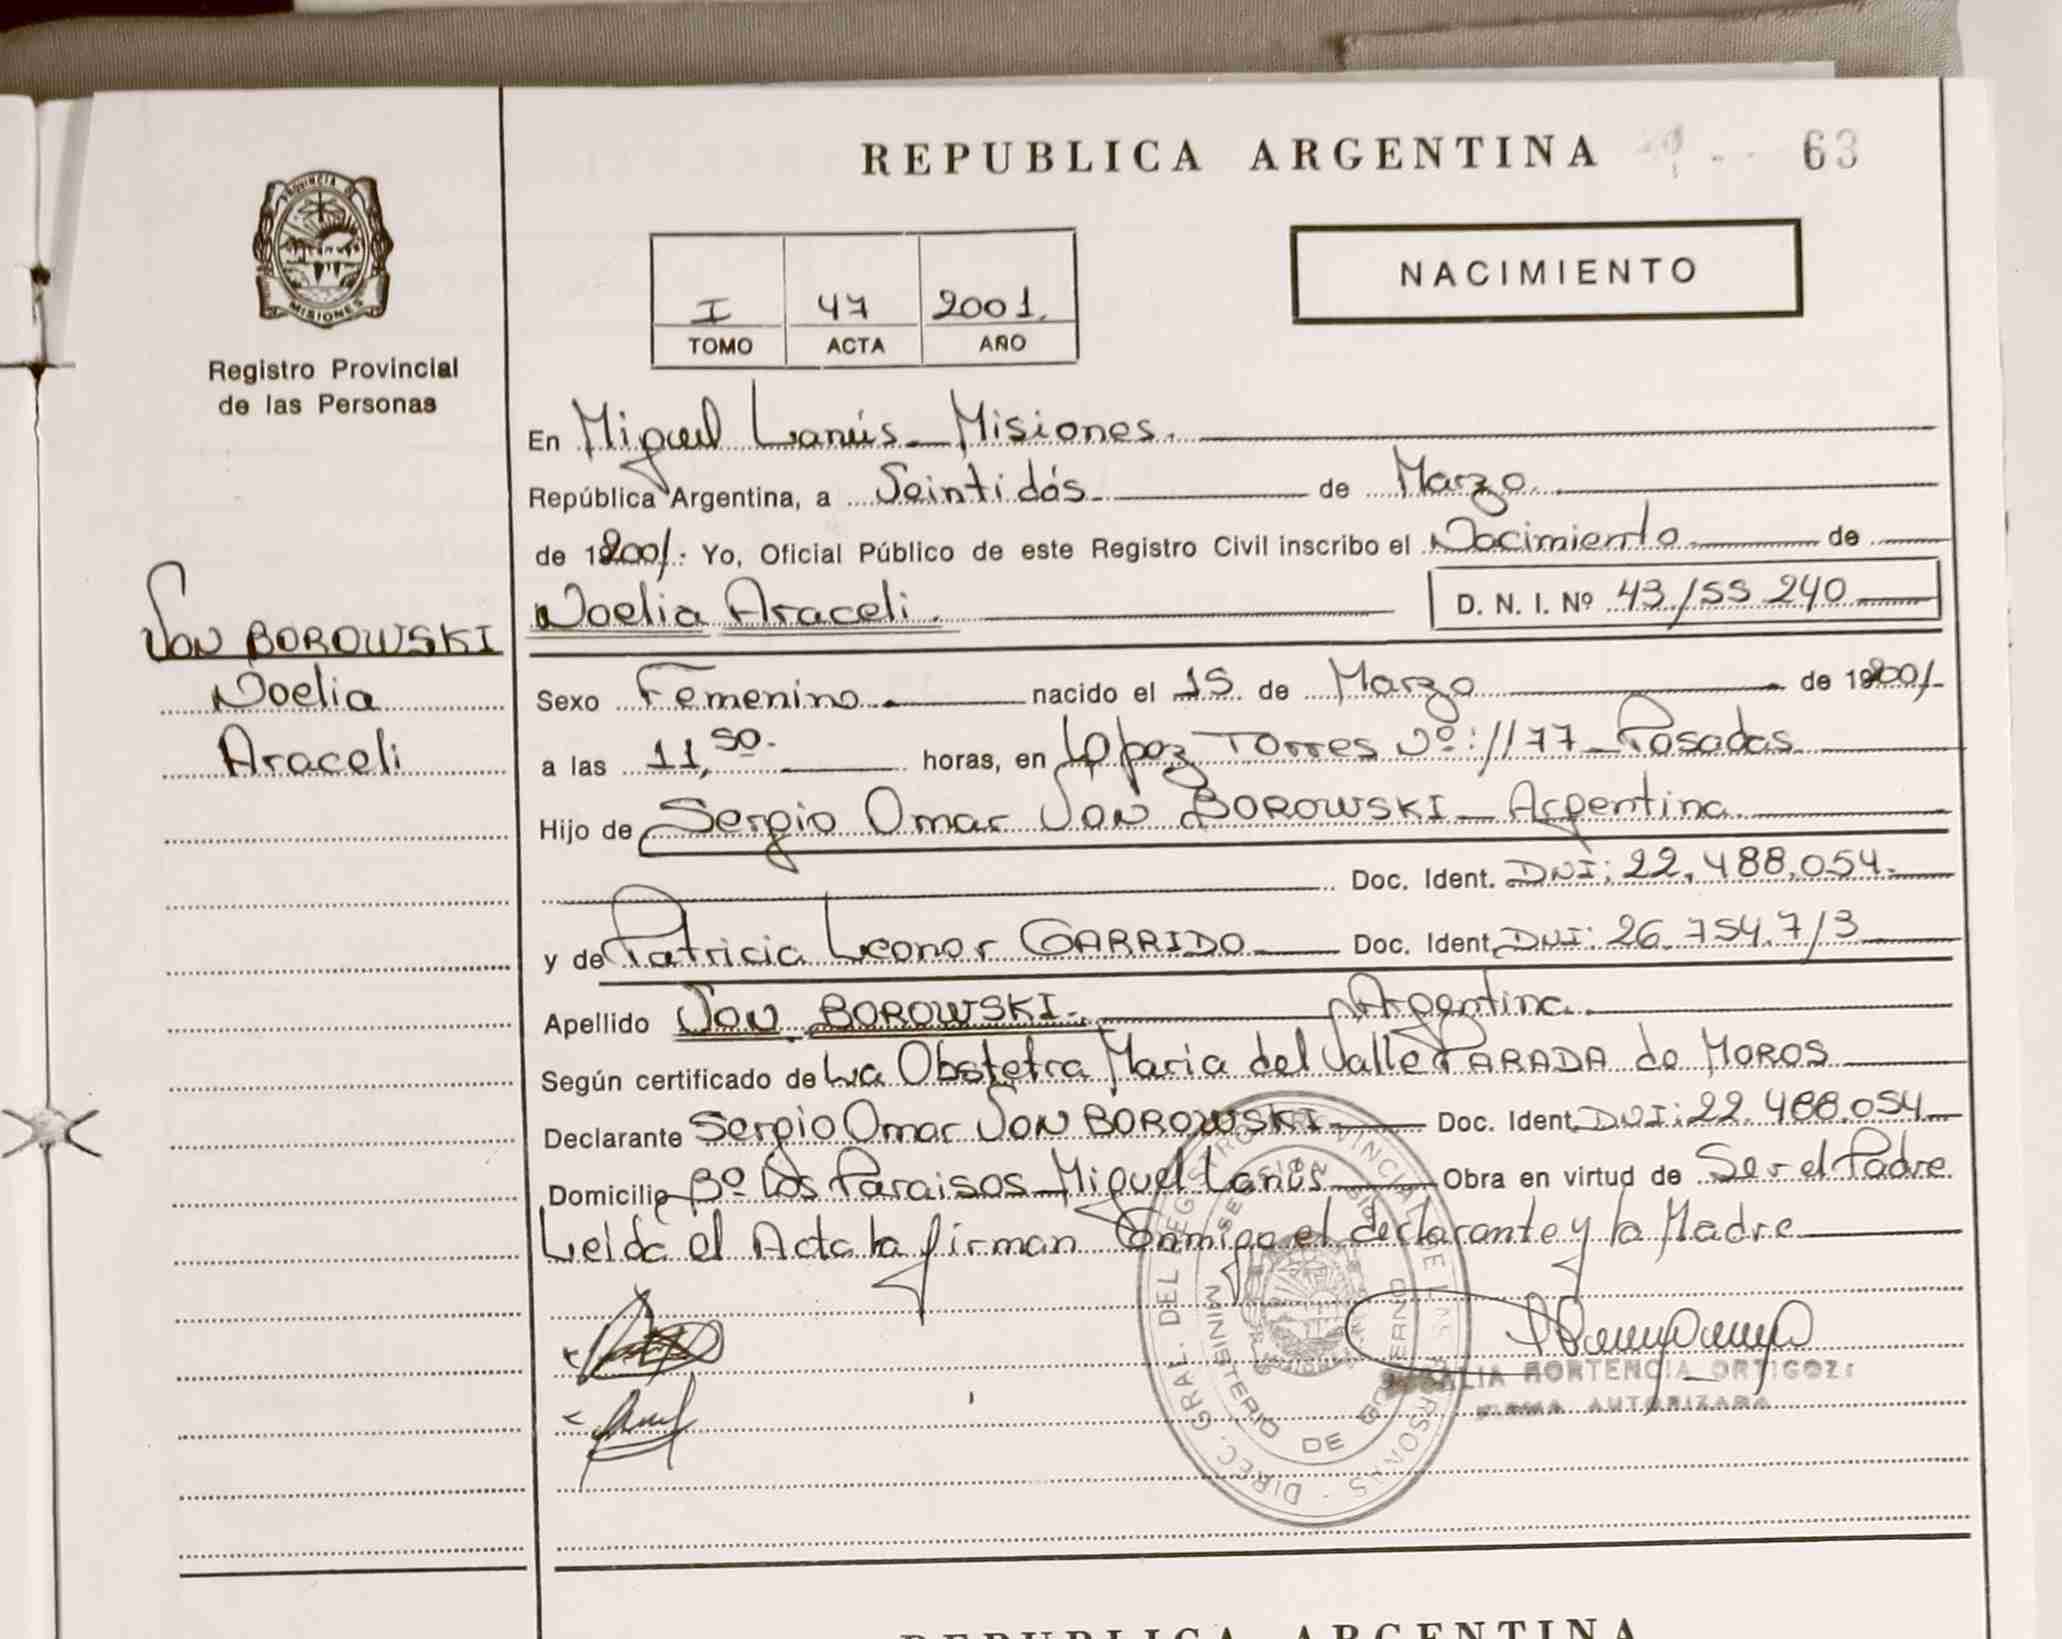 REPUBLICA ARGENTINA
63
PROVINCIA DE
MISIONES
Registro Provincial
de las Personas
I 47 2001.
TOMO ACTA AÑO
NACIMIENTO
En Miguel Lanús - Misiones.
República Argentina, a Veintidós de Marzo
de 192001. Yo, Oficial Público de este Registro Civil inscribo el Nacimiento de
Noelia Araceli. D. N. I. Nº 43.155 240
VON BOROWSKI
Noelia
Araceli
Sexo Femenino nacido el 15 de Marzo de 192001
a las 11,50. horas, en López Torres Nº: 1177 - Posadas
Hijo de Sergio Omar VON BOROWSKI - Argentina
Doc. Ident. DNI: 22.488.054.
y de Patricia Leonor GARRIDO Doc. Ident. DNI: 26.754.713
Apellido VON BOROWSKI. Argentina
Según certificado de La Obstetra Maria del Valle PARADA de MOROS
Declarante Sergio Omar VON BOROWSKI Doc. Ident. DNI: 22.488.054
Domicilio Bº Los Paraisos - Miguel Lanús Obra en virtud de Ser el Padre
Leída el Acta la firman Conmigo el declarante y la Madre
DIREC. GRAL. DEL REGISTRO PROVINCIAL DE LAS PERSONAS
MINISTERIO DE GOBIERNO
HORTENCIA ORTIGOZA
FIRMA AUTORIZADA
REPUBLICA ARGENTINA